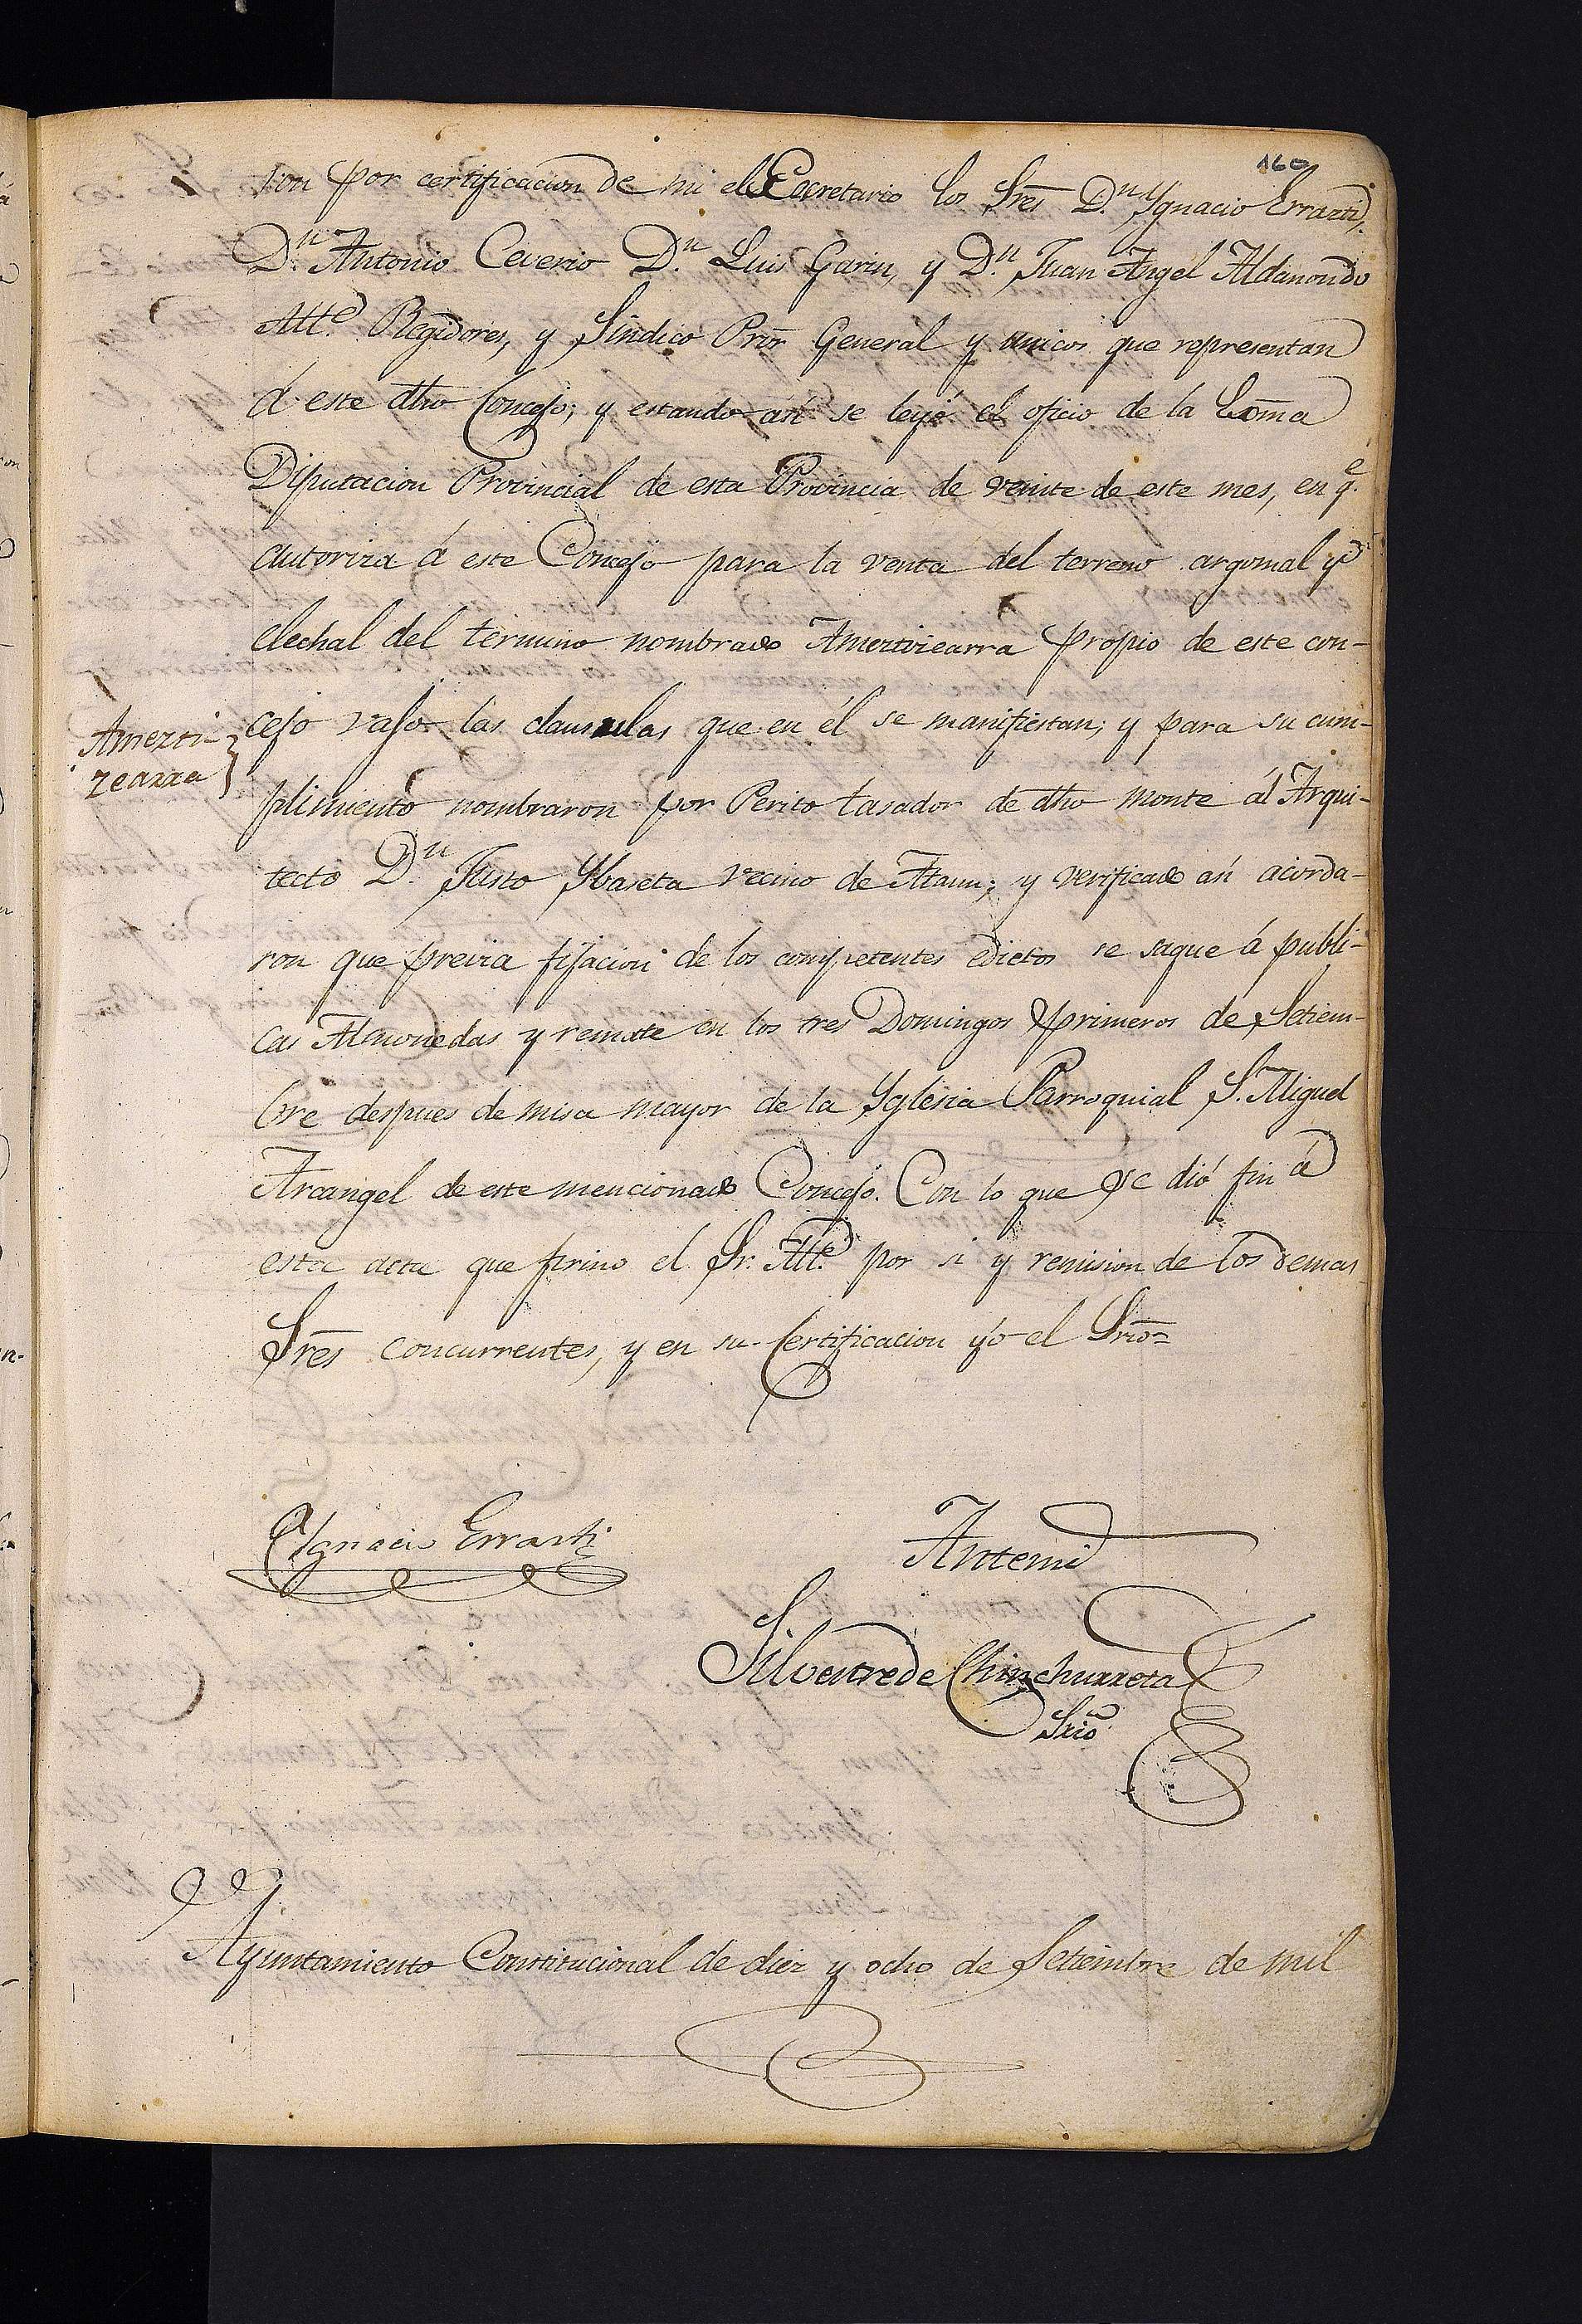 160
ron por certificacion de mi el Secretario los Sres Dn. Ygnacio Errazti,
Dn. Antonio Ceverio Dn. Luis Garin, y Dn. Juan Angel Aldanondo
Alle. Regidores, y Sindico Pror. General y unicos que representan
á este dho Concejo; y estando así se leyó el oficio de la Exma
Diputacion Provincial de esta Provincia de veinte de este mes, en qe.
autoriza á este Concejo para la venta del terreno argomal y
elechal del termino nombrado Ameztizearra propio de este con-
Amezti-
zearra
cejo vajo las clausulas que en él se manifiestan; y para su cum-
plimiento nombraron por Perito tasador de dho monte ál Arqui-
tecto Dn. Justo Ybaseta vecino de Ataun; y verificado así acorda-
ron que previa fijacion de los competentes edictos se saque á publi-
cas Almonedas y remate en los tres Domingos primeros de Setiem-
bre despues de misa mayor de la Yglesia Parroquial Sn. Miguel
Arcangel de este mencionado Concejo. Con lo que se dió fin á
esta acta que firmo el Sr. Alle. por si y remision de los demas
Sres concurrentes, y en su Certificacion yó el Srio=
Ygnacio Errasti
Antemi
Silvestre de Chinchurreta
Srio
Ayuntamiento Constitucional de diez y ocho de Setiembre de mil